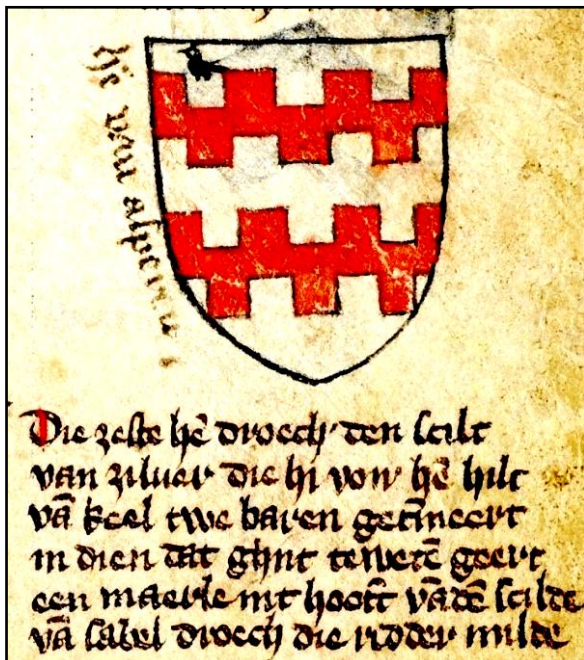 h͞e van alpeen
Die zeste hē droech den scilt
van ziluer die hi voir hē hilt
vā keel twe baren getīneert
in dien dat ghiit tewetē geert
een maerle int hooft vādē scilde
vā sabel droech die ridder milde